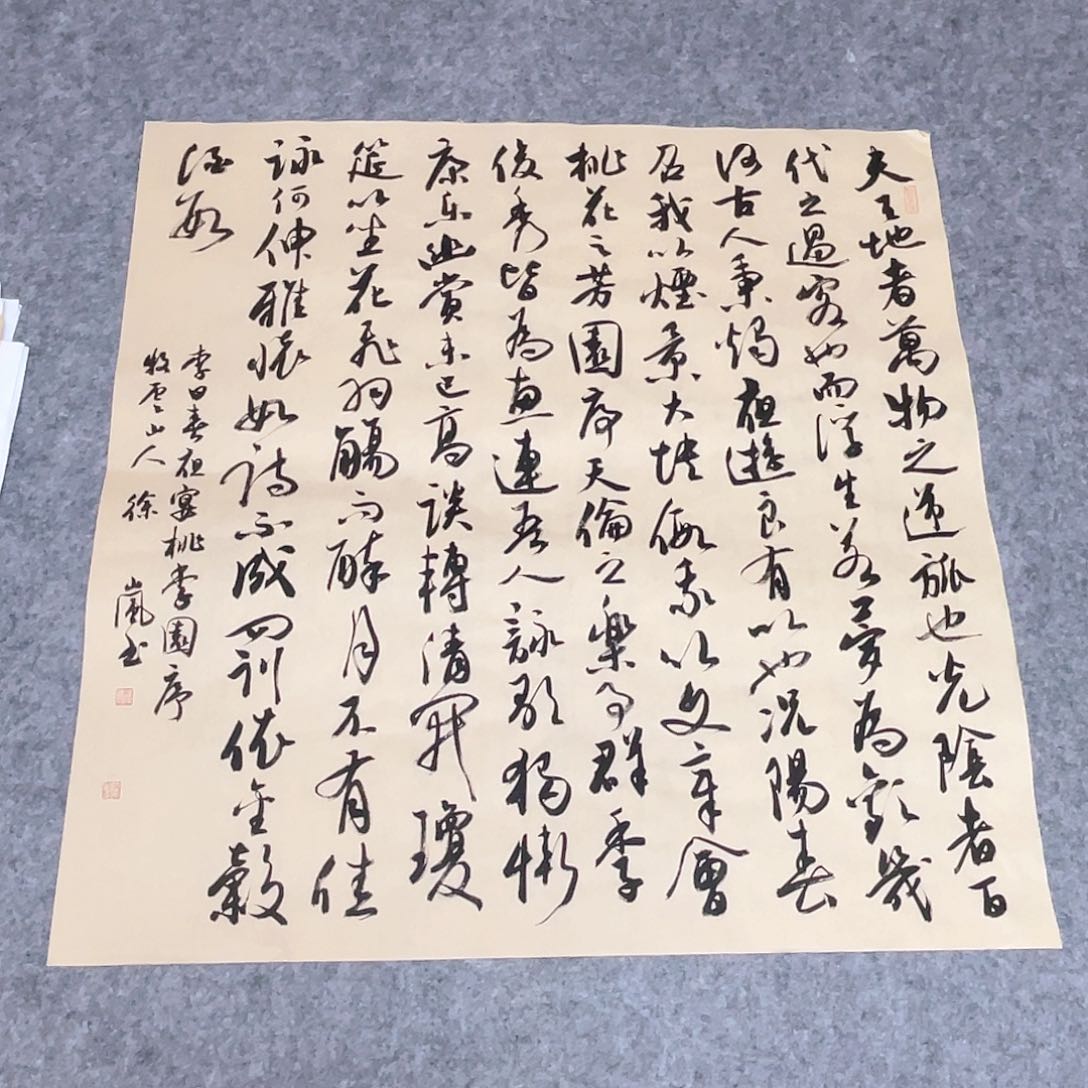 夫天地者萬物之逆旅也光陰者百
代之過客也而浮生若夢為歡幾
何古人秉燭夜遊良有以也況陽春
召我以煙景大塊假我以文章會
桃花之芳園序天倫之樂事群季
俊秀皆為惠連吾人詠歌獨慚
康樂幽賞未已高談轉清開瓊
筵以坐花飛羽觴而醉月不有佳
詠何伸雅懷如詩不成罰依金穀
酒數
李白春夜宴桃李園序
牧雲山人 徐嵐书